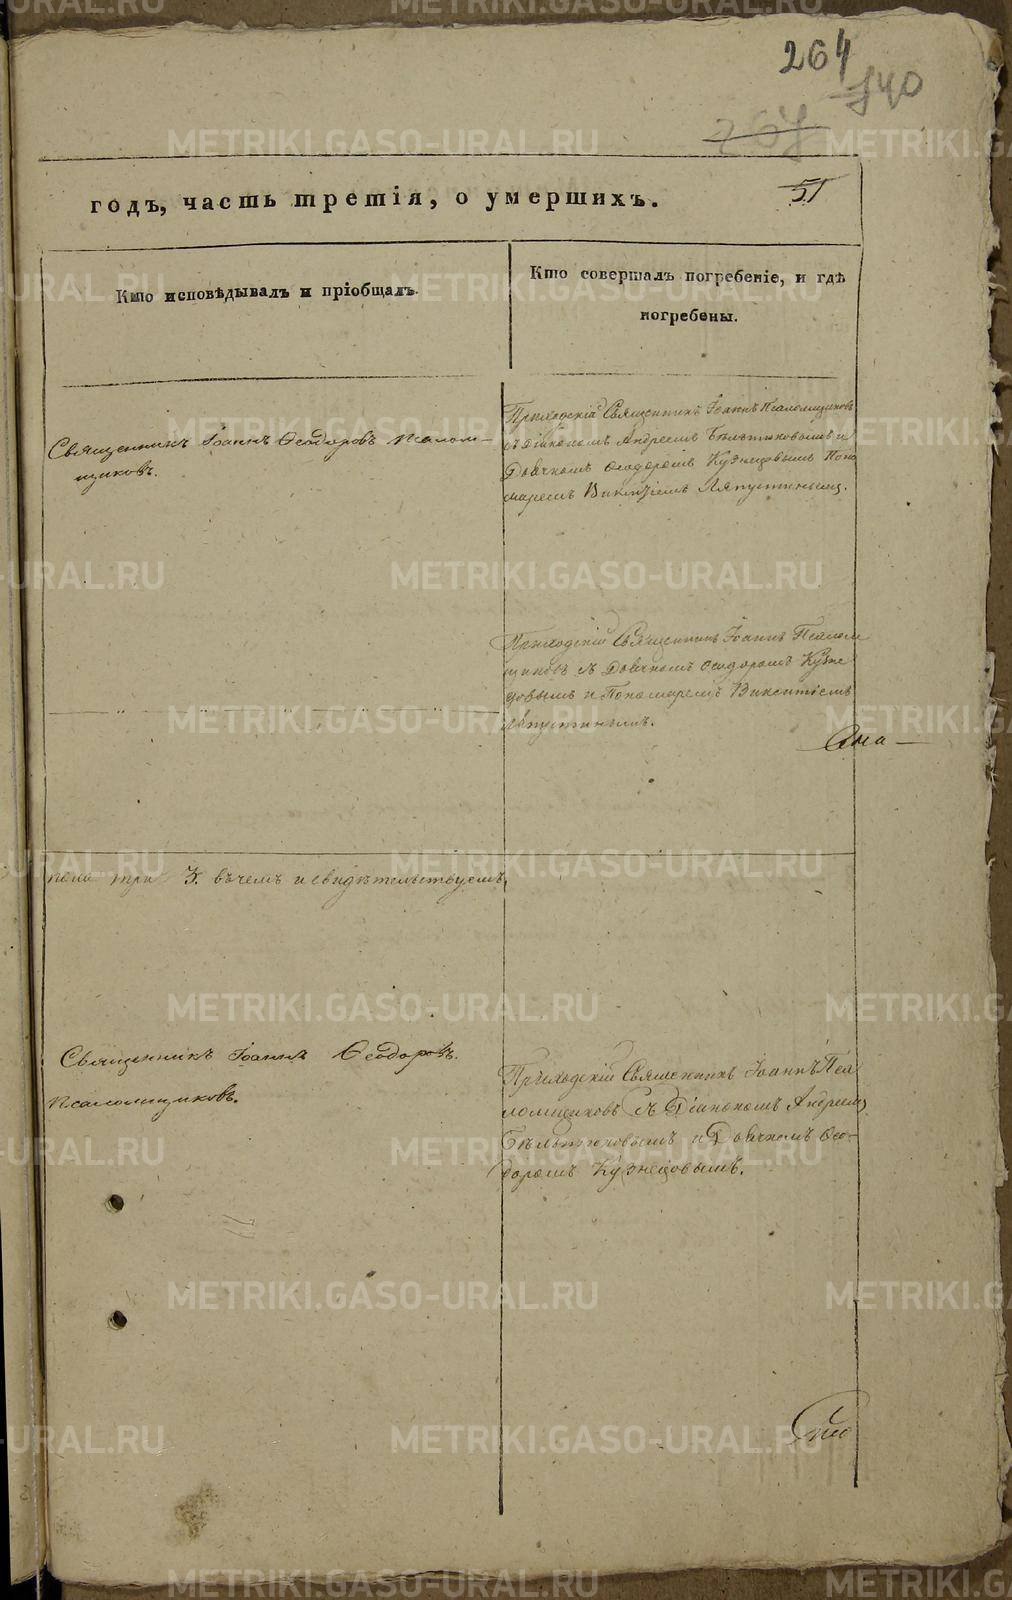 264
140
267
51
годъ, часть третія, о умершихъ.
Кто исповѣдывалъ и пріобщалъ.
Кто совершалъ погребеніе, и гдѣ
погребены.
Священникъ Іоаннъ Ѳеодоровъ Псалом-
щиковъ.
Приходскій Священникъ Іоаннъ Псаломщиковъ
съ Діакономъ Андреемъ Бѣльтюковымъ и
Дьячкомъ Ѳеодоромъ Кузнецовымъ Поно
маремъ Викентіемъ Ляпустинымъ.
Приходскій Священникъ Іоаннъ Псалом
щиковъ съ Дьячкомъ Ѳеодоромъ Кузне
цовымъ и Пономаремъ Викентіемъ
Ляпустинымъ.
три 3. въчемъ и свидѣтельствуемъ,
Священникъ Іоаннъ Ѳеодоровъ.
Псаломщиковъ.
Приходскій Священникъ Іоаннъ Пса
ломщиковъ съ Діакономъ Андреемъ
Бѣльтюковымъ и Дьячкомъ Ѳео-
доромъ Кузнецовымъ.
METRIKI.GASO-URAL.RU